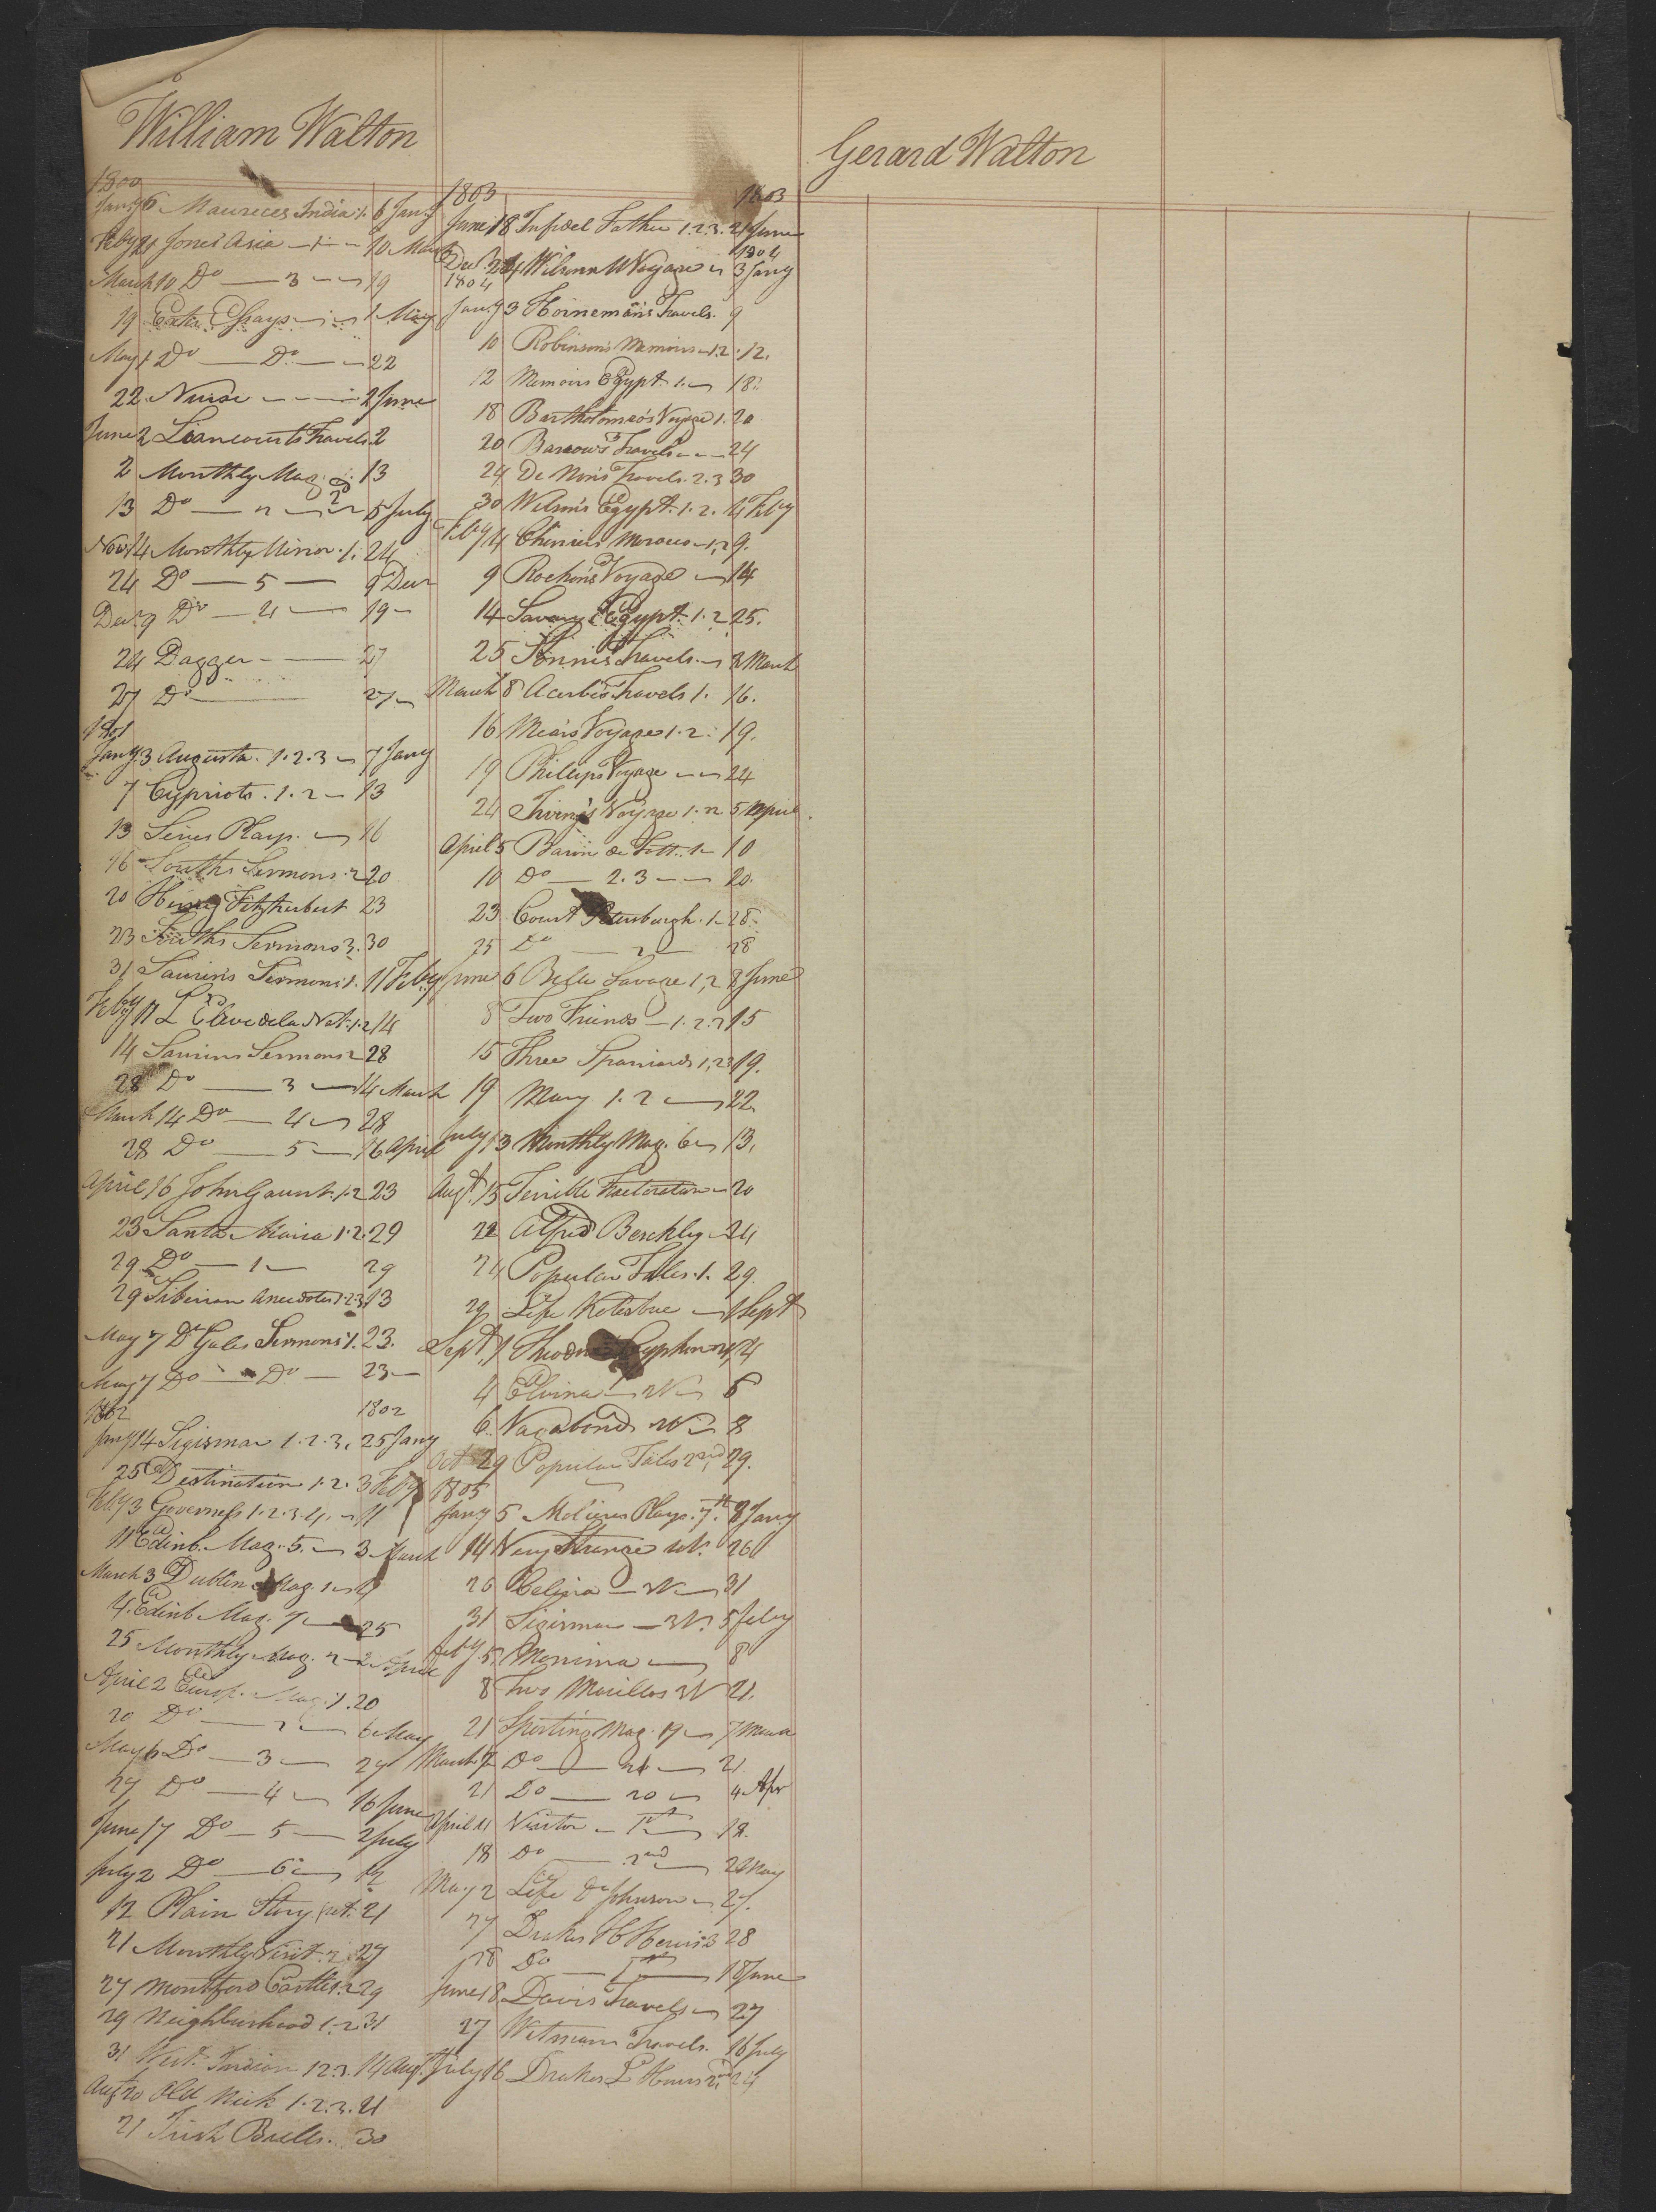 William Walton
1800
Jany 6 Maurices India 1. 6 Jany
Feby 21 Jones Asia — 1 — 10 March
March 10 Do — 3 — 19
19 Exeter Essays — 1 May
May 1 Do — Do — 22
22 Nurse — 2 June
June 2 Liancourts Travels 2
2 Monthly Mag. 13
13 Do — 2 — 5 July
Novr 14 Monthly Mirror. 1. 24
24 Do — 5 — 9 Decr
Decr 9 Do — 4 — 19
24 Dagger — 27
27 Do — 27
1801
Jany 3 Augusta. 1.2.3 — 7 Jany
7 Cypriots. 1.2 — 13
13 Series Plays. — 16
16 Souths Sermons. 2 20
20 Henry Fitzherbert 23
23 Souths Sermons 3. 30
31 Saurins Sermons 1. 11 Feby
Feby 11 L Elave dela Nat. 1.2 14
14 Saurins Sermons 2 28
28 Do — 3 — 14 March
March 14 Do — 4 — 28
28 Do — 5 — 16 April
April 16 John Gaunt. 1.2 23
23 Santa Maria 1.2. 29
29 Do — 1 — 29
29 Siberian Anecdotes 1.2.3 13
May 7 Dr Gales Sermons 1. 23.
May 7 Do — Do — 23 —
1802 1802
Jany 14 Sigismar 1.2.3. 25 Jany
25 Destination 1.2. 3 Feby
Feby 3 Governess 1.2.3.4. — 11
11 Edinb. Mag. 5. — 3 March
March 3 Dublin Mag. 1 — 4
4. Edinb Mag. 7 — 25
25 Monthly Mag. 2 — 2 April
April 2 Europ. Mag. 1. 20
20 Do — 2 — 6 May
May 6 Do — 3 — 27
27 Do — 4 — 16 June
June 17 Do — 5 — 2 July
July 2 Do — 6 — 12
12 Plain Story 21
21 Monthly Visit. 2 27
27 Montford Castle 1.2 29
29 Neighbourhood 1.2 31
31 West Indian 1.2.3. 14 Augt
Augt 20 Old Nick 1.2.3. 21
21 Irish Bulls. 30
1803 1803
June 18 Infidel Father 1.2.3. 21 June
Decr 24 Wilsons M Voyage — 1804 3 Jany
1804
Jany 3 Hornemans Travels. 9
10 Robinsons Memoirs 1.2. 12.
12 Memoirs Egypt. 1. — 18.
18 Bartholomeo's Voyage 1. 20
20 Barrows Travels — 24
24 De Nons Travels. 2.3 30
30 Wilsons Egypt. 1.2. 4 Feby
Feby 4 Cheniers Moroco — 1.2 9.
9 Rochons Voyage — 14
14 Savary's Egypt. 1.2 25.
25 Sonnis Travels — 8 March
March 8 Acerbis Travels 1. 16.
16 Mears Voyage 1.2. 19.
19 Phillips Voyage — 24
24 Irvings Voyage 1.2 5 April
April 5 Baron de Tott. 1 — 10
10 Do — 2.3 — 20.
23 Court Petersburgh. 1 — 28.
25 Do — 2 — 28
June 6 Belle Savage 1,2 8 June
8 Two Friends — 1.2.3 15
15 Three Spaniards 1,2,3 19.
19 Mary 1.2 — 22.
July 13 Monthly Mag. 6 — 13.
Augt 15 Terrible Tractoration — 20
22 Alfred Berckley — 24
24 Popular Tales. 1. 29.
29 Life Kotzebue — 1 Sept
Sept 1 Theodore Cyphon 4
4 Elvina — 2V — 6
6 Vagabond 2V — 8
Oct 29 Popular Tales 2nd. 29.
1805
Jany 5 Molieres Plays. 7th 8 Jany
14 Very Strange 26
26 Celina — 2V — 31
31 Sigismar — 3V. 5 Feby
Feby 5 Monima — 8
8 Two Marillos 3V 21.
21 Sporting Mag. 19 — 7 March
March 7 Do — 21 — 21.
21 Do — 20 — 4 Apr
April 11 Visitor — 1st — 18.
18 Do — 2nd — 2 May
May 2 Life Dr Johnson — 27.
27 Drakes L Hours 3 28
28 Do — 1st — 18 June
June 18 Davis Travels — 27
27 Witmans Travels. 16 July
July 16 Drakes L Hours 2nd 24
Gerard Walton